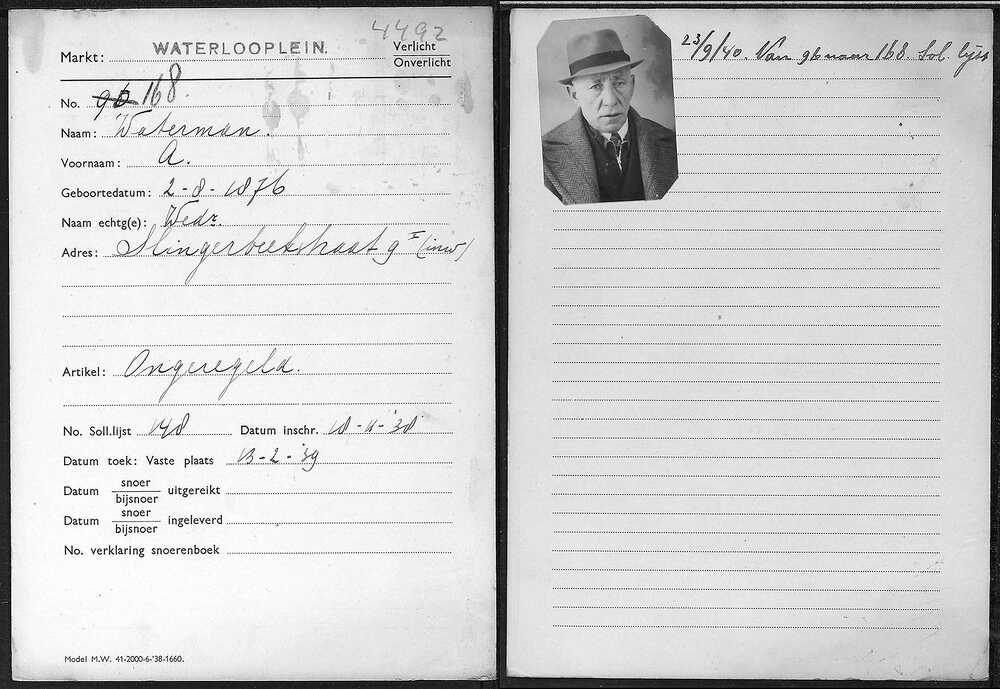 4492
Markt: WATERLOOPLEIN. Verlicht
Onverlicht
No. 96 168.
Naam: Waterman.
Voornaam: A.
Geboortedatum: 2-8-1876
Naam echtg(e): Wedr.
Adres: Slingerbeekstraat 9 I (inw)
Artikel: Ongeregeld.
No. Soll.lijst 148 Datum inschr. 18-11-'38
Datum toek: Vaste plaats 13-2-'39
Datum snoer uitgereikt
bijsnoer
Datum snoer ingeleverd
bijsnoer
No. verklaring snoerenboek
Model M.W. 41-2000-6-'38-1660.
23/9/40. Van 96 naar 168. Sol. lijst